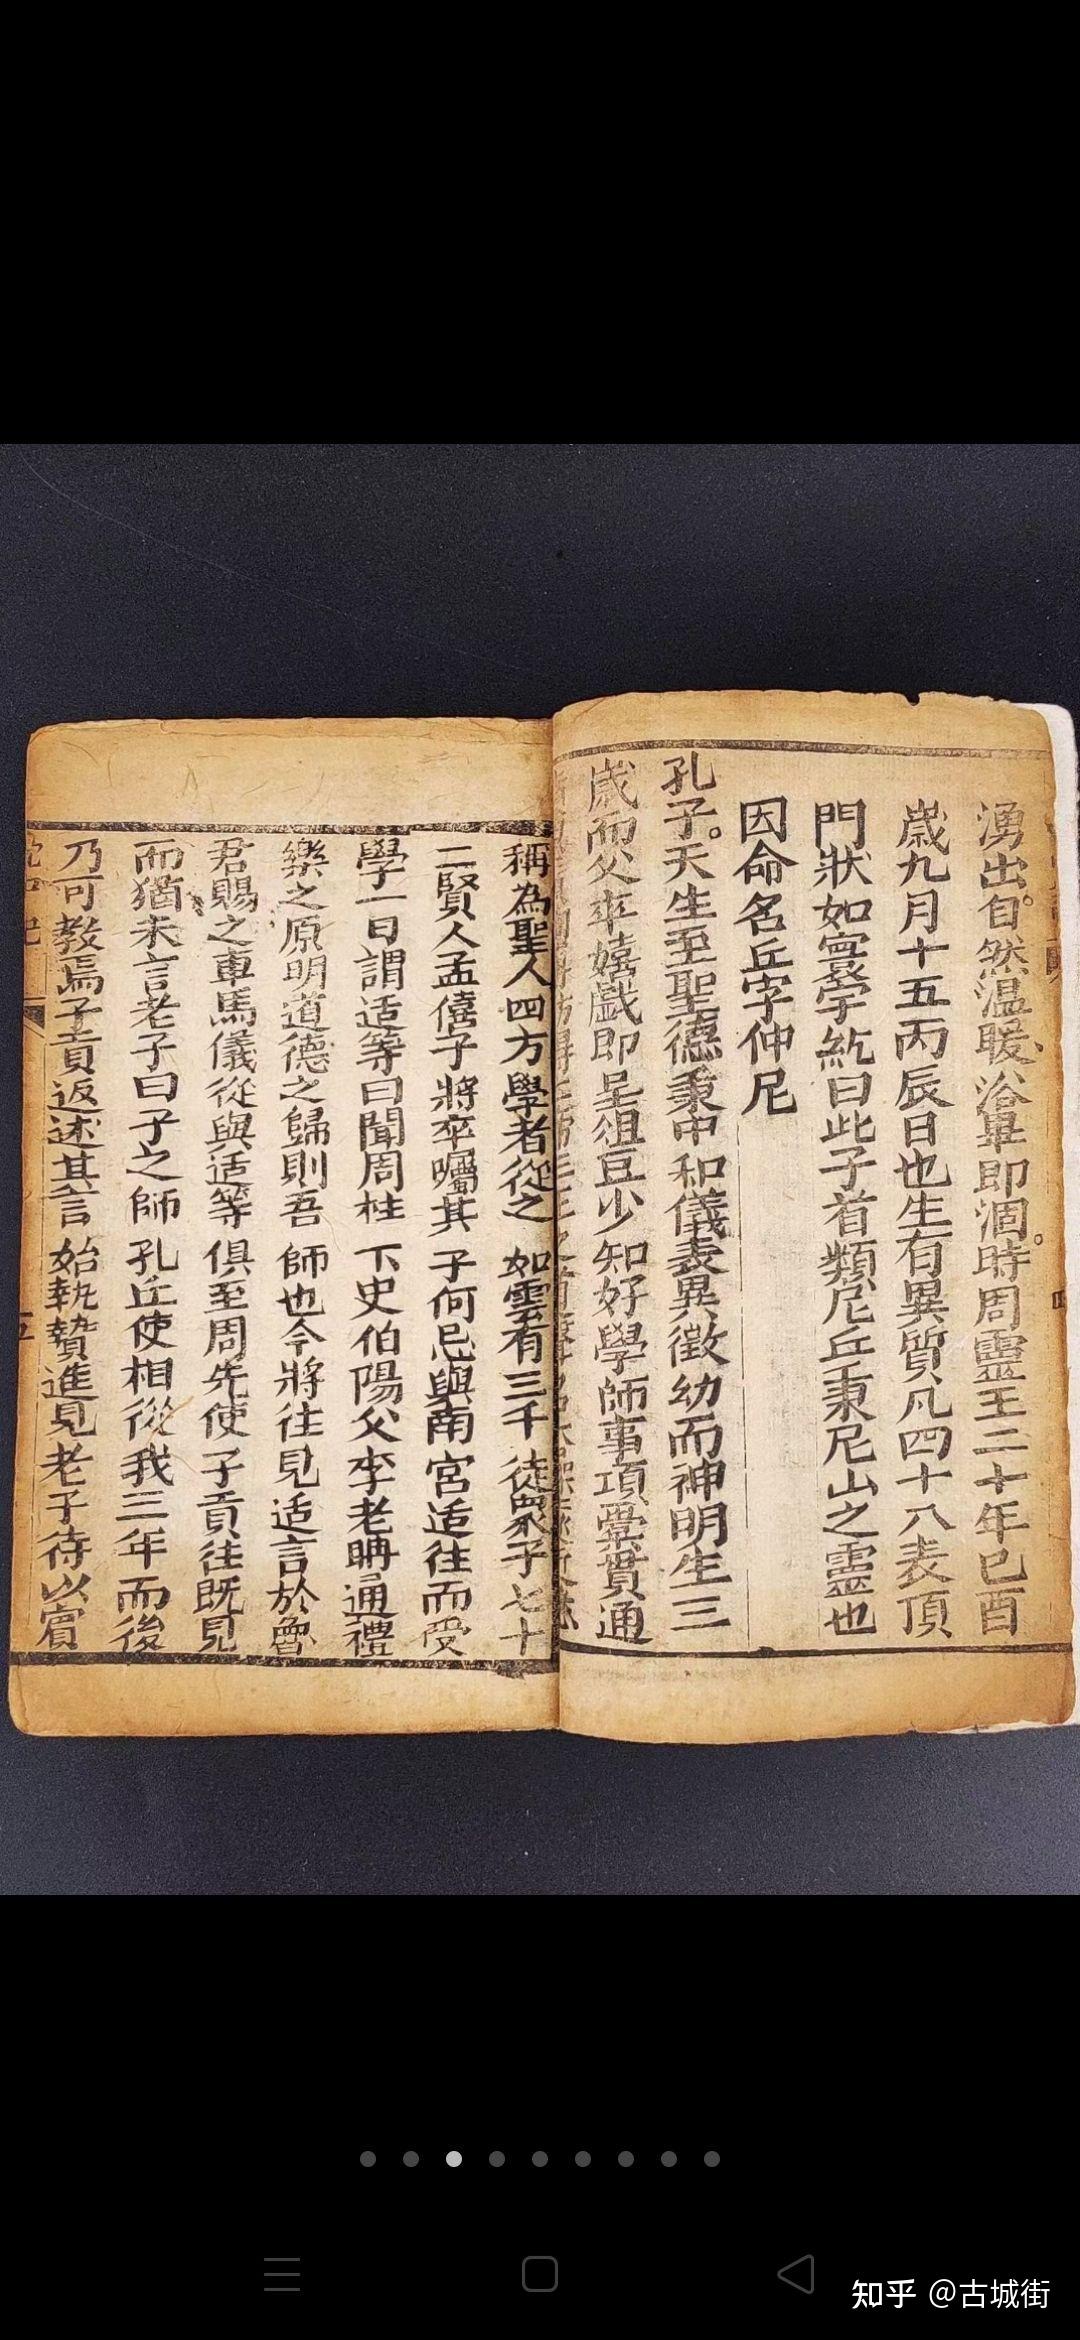 湧出自然温暖浴畢即涸時周靈王二十年己酉
歲九月十五丙辰日也生有異質凡四十八表頂
門狀如寰宇紇曰此子首類尼丘秉尼山之靈也
因命名丘字仲尼
孔子天生至聖德秉中和儀表異徵幼而神明生三
歲而父卒嬉戲即呈俎豆少知好學師事項槖貫通
稱為聖人四方學者從之如雲有三千徒衆子七十
二賢人孟僖子將卒囑其子何忌與南宮适往而受
學一日謂适等曰聞周柱下史伯陽父李老聃通禮
樂之原明道德之歸則吾師也今將往見适言於魯
君賜之車馬儀從與适等俱至周先使子貢往既見
而猶未言老子曰子之師孔丘使相從我三年而後
乃可教焉子貢返述其言始執贄進見老子待以賓
知乎 @古城街